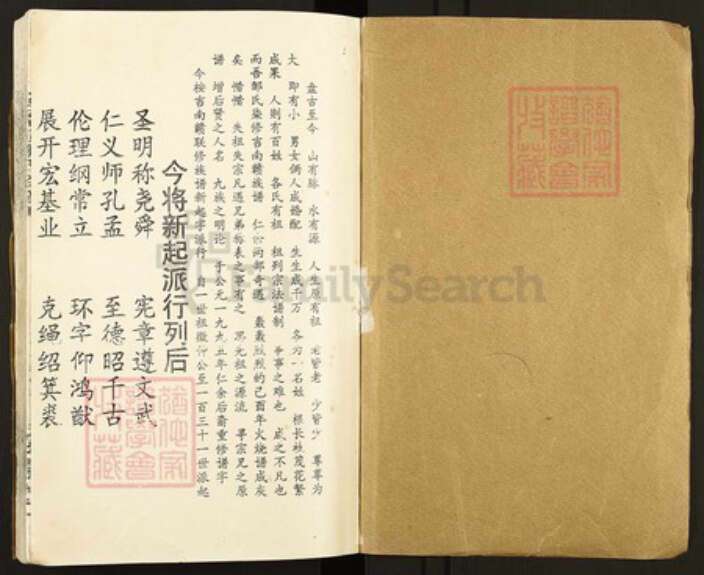 盘古至今 山有脉 水有源 人生原有祖 老皆老 少皆少 尊尊为
大 即有小 男女俩人成婚配 生生成千万 各为一名姓 根长枝茂花繁
成果 人则有百姓 各氏有祖 祖列宗法谱制 事之难也 成之不凡也
而吾邹氏 修吉南赣族谱 轰轰烈烈的己酉年火烧谱成灰
矣 惜惜 失祖失宗凡遇兄弟 表之事有之 黑元祖之源流 寻宗兄之原
谱 增后贤之人名 九族之明论 于公元一九九五年仁余后裔重修谱字
今按吉南赣联修族谱新起字派行 自一世祖徽 公至一百三十一世派起
今将新起派行列后
圣明称尧舜 宪章遵文武
仁义师孔孟 至德昭千古
伦理纲常立 环字仰鸿猷
展开宏基业 克绳绍箕裘
FamilySearch